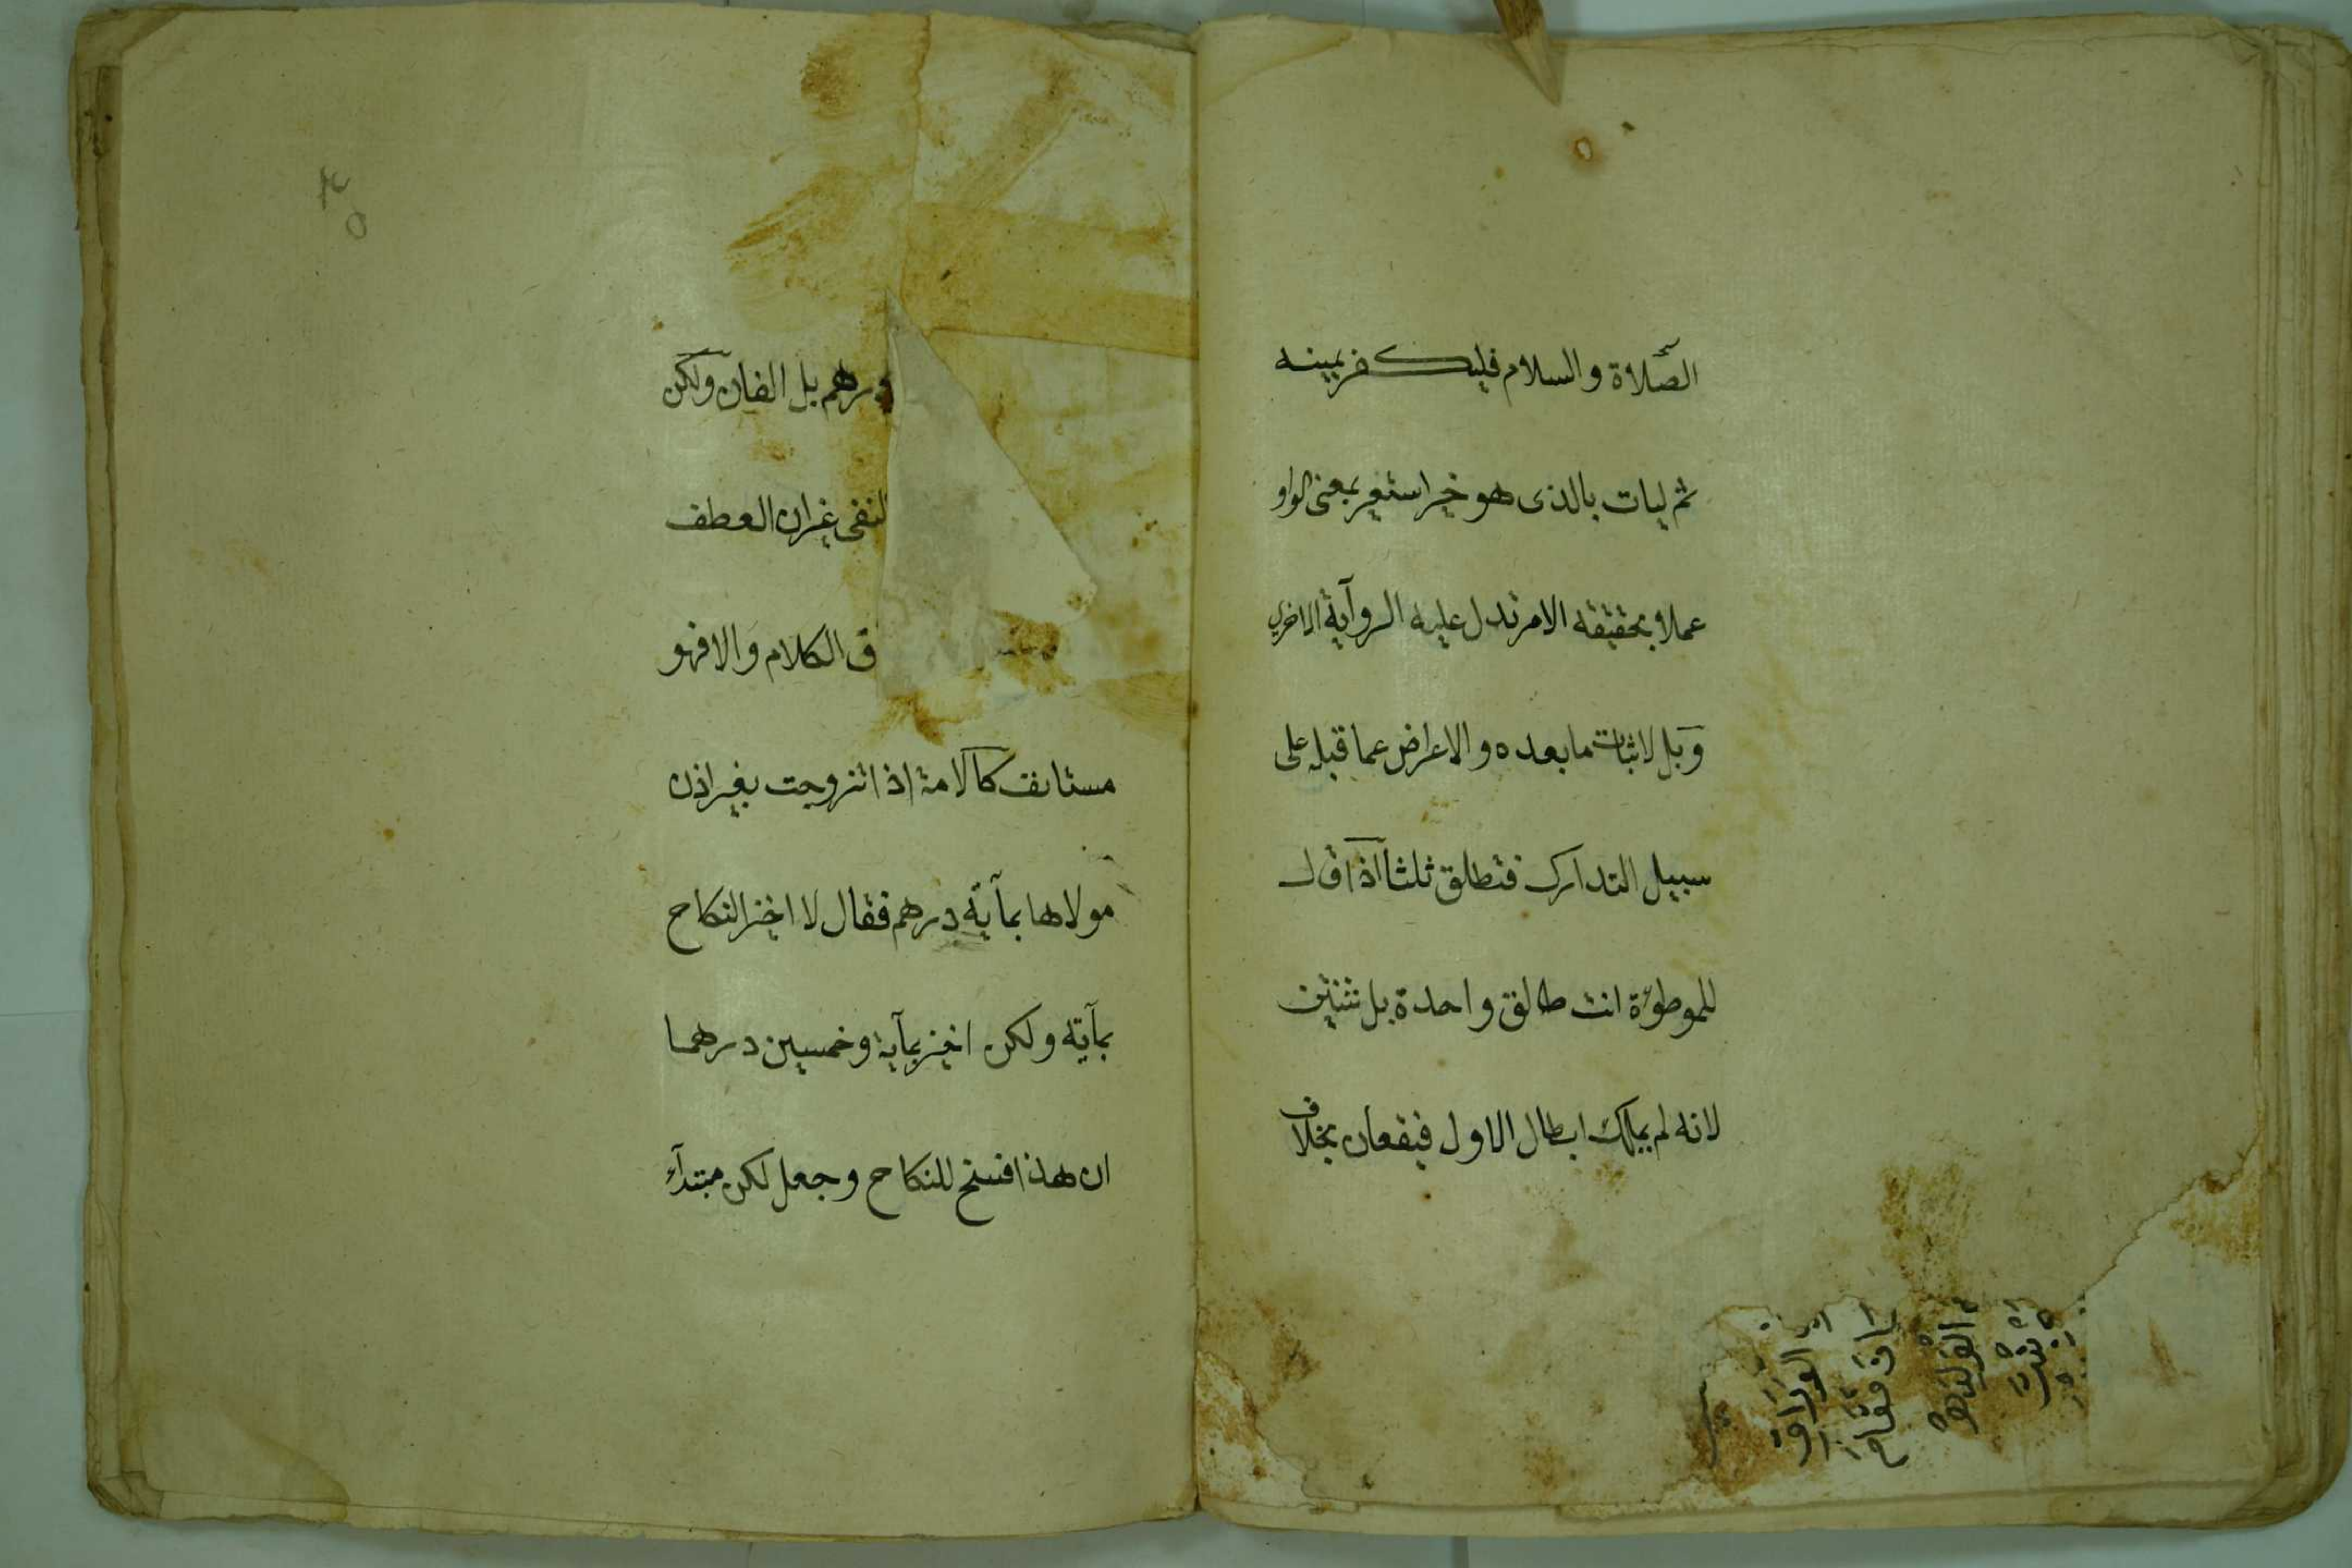 الصلاة والسلام فليكفر بيمينه
ثم ليات بالذى هو خير استعير بمعنى الواو
عملا بحقيقة الامر تدل عليه الروآية الاخري
وبل لاثبات ما بعده والاعراض عما قبله على
سبيل التدارك فتطلق ثلثا اذا قال
للموطؤة انت طالق واحدة بل ثنتين
لانه لم يملك ابطال الاول فيقعان بخلاف
درهم بل الفان ولكن
النفى غير ان العطف
ق الكلام والا فهو
مستانف كالامة اذا تزوجت بغير اذن
مولاها بمآية درهم فقال لا اخيز النكاح
بمآية ولكن اخيز بمآية وخمسين درهما
ان هذا فسخ للنكاح وجعل لكن مبتدآء